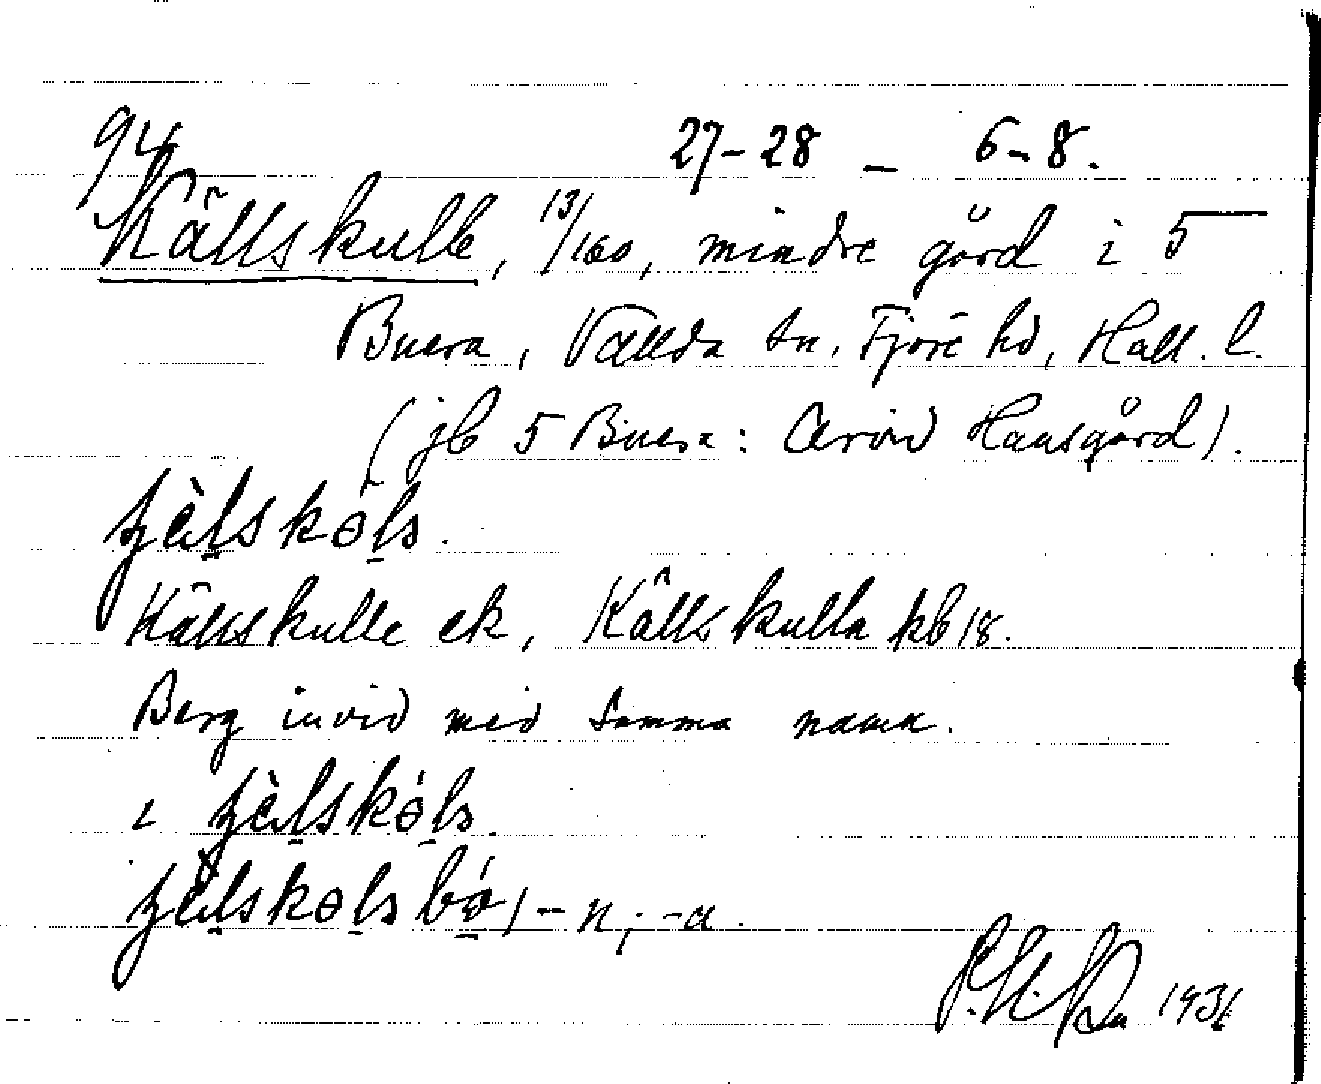 94
27-28 - 6-8.
Källskulle, 13/160, mindre gård i 5
Buera, Vallda sn. Fjäre hd, Hall. l.
(jb 5 Buera: Arvid Hansgård).
Källskulle ek, Källskulla kb 18.
Berg invid med samma namn.
i
-n, -a.
1931